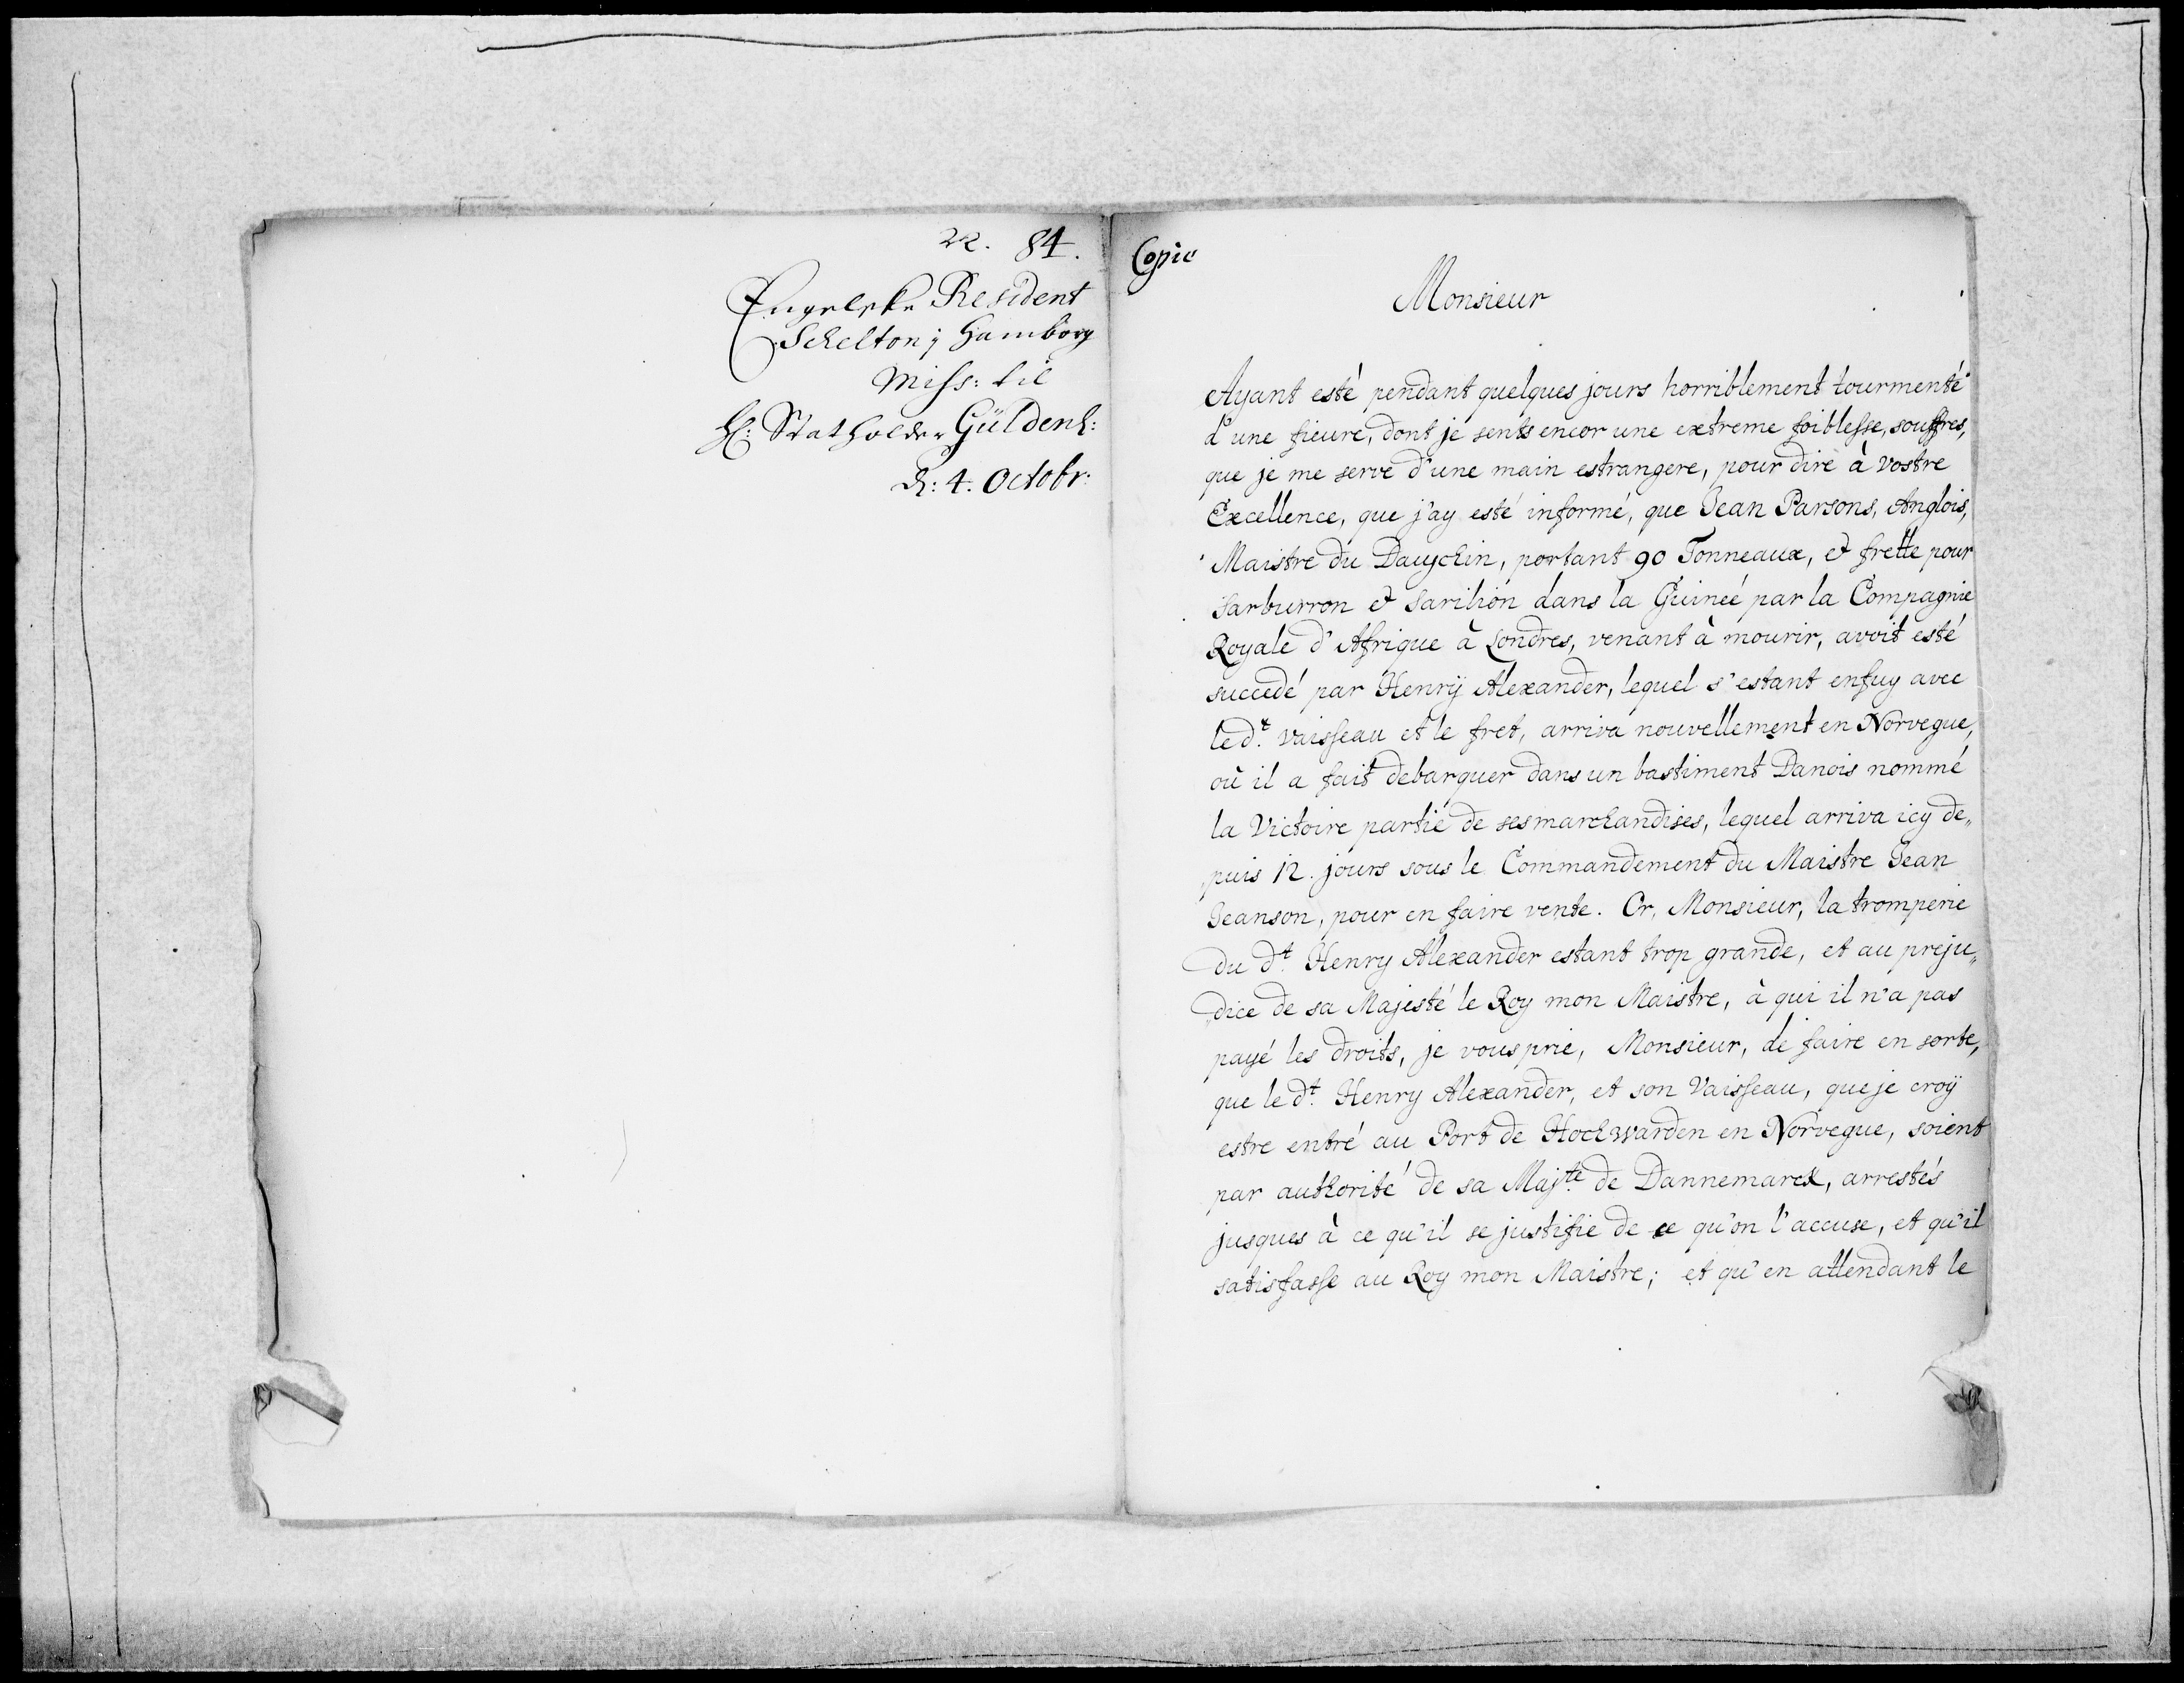 22. 84.
Engelske Resident
Schelton i Hamborg
Miss: til
H: Statholder Güldenl:
d: 4. Octobr:
Copie
Monsieur
Ayant esté pendant quelques jours horriblement tourmenté
d'une fieure, dont je sents encor une extreme foiblesse, souffres,
que je me serve d'une main estrangere, pour dire à vostre
Excellence, que j'ay esté informé, que Jean Parsons, Anglois,
Maistre du Dauchin, portant 90 Tonneaux, et frette pour
Sarburron et Sarilion dans la Guinée par la Compagnie
Royale d'Afrique à Londres, venant à mourir, avoit esté
succedé par Henrÿ Alexander, lequel s'estant enfuy avec
le dt. vaisseau et le fret, arriva nouvellement en Norvegue,
où il a fait debarquer dans un bastiment Danois nommé
la Victoire partie de ses marchandises, lequel arriva icy de„
puis 12. jours sous le Commandement du Maistre Jean
Jeanson, pour en faire vente. Or, Monsieur, la tromperie
du dt. Henry Alexander estant trop grande, et au preju„
„dice de sa Majesté le Roy mon Maistre, à qui il n'a pas
payé les droits, je vous prie, Monsieur, de faire en sorte,
que le dt. Henry Alexander, et son Vaisseau, que je croÿ
estre entré au Port de Hochwarden en Norvegue, soient
par authorité de sa Majte. de Dannemarck, arrestés
jusques à ce qu'il se justifie de ce qu'on l'accuse, et qu'il
satisfasse au Roy mon Maistre; et qu'en attendant le